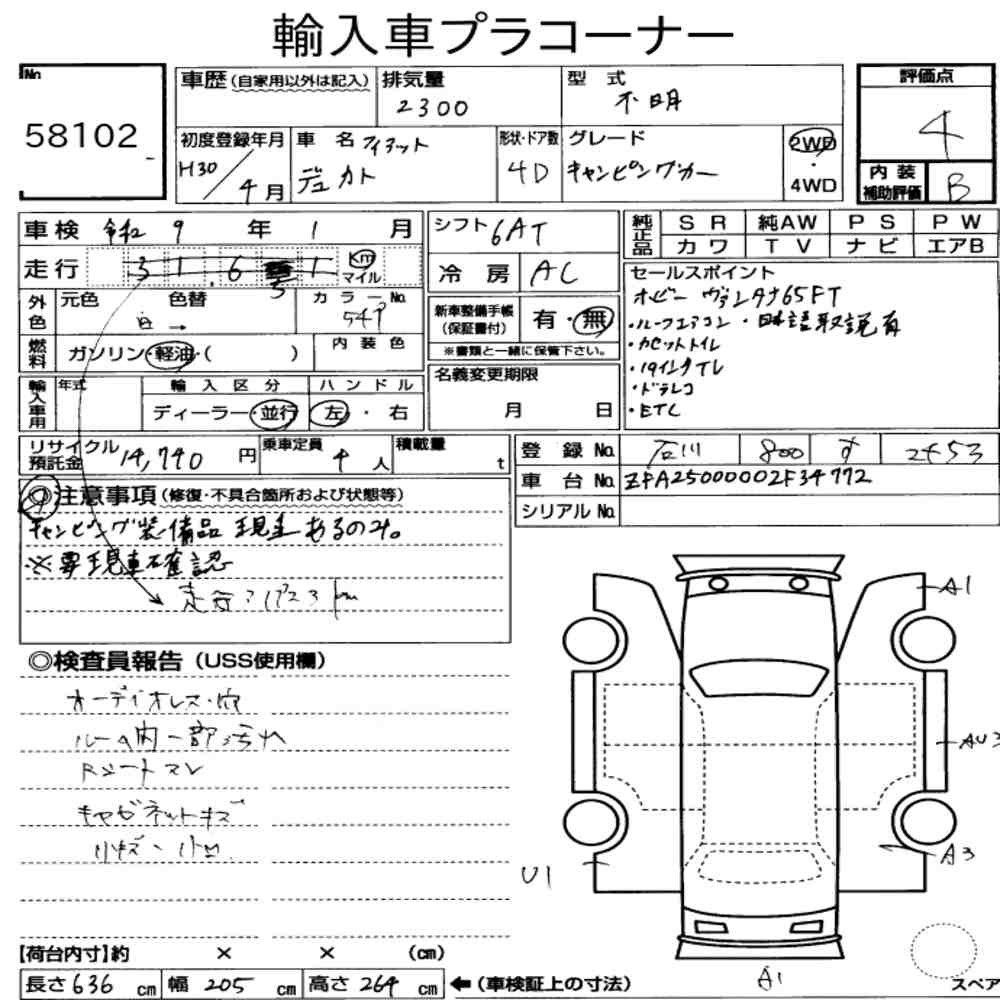 輸入車プラコーナー
No
58102
車歴(自家用以外は記入)
排気量
2300
型 式
不明
評価点
4
初度登録年月
H30
4月
車 名 フィアット
デュカト
形状・ドア数
4D
グレード
キャンピングカー
2WD
・
4WD
内装
補助評価
B
車検 令和 9 年 1 月
走行 3 1 6 1 km
マイル
5
外色
元色 色替
白 →
カラーNo
549
燃料
ガソリン・軽油・( )
内装色
輸入車用
年式
輸入区分
ディーラー・並行
ハンドル
左・右
シフト 6AT
冷房 AC
新車整備手帳
(保証書付)
有・無
※書類と一緒に保管下さい。
名義変更期限
月 日
純正品
SR 純AW PS PW
カワ TV ナビ エアB
セールスポイント
ホビー ヴァンタナ65FT
・ルーフエアコン ・日本語取説有
・カセットトイレ
・19インチTV
・ドラレコ
・ETC
リサイクル
預託金
14,740 円
乗車定員
4 人
積載量
t
登録No 石川 800 す 2453
車台No ZFA25000002F34772
シリアルNo
◎注意事項(修復・不具合箇所および状態等)
キャンピング装備品 現車あるのみ。
※要現車確認
◎検査員報告(USS使用欄)
オーディオレス・穴
ルーム内一部汚れ
Rシートスレ
キャビネットキズ
小キズ・小凹
A1
AU3
A3
U1
A1
スペア
【荷台内寸】約 × × (cm)
長さ 636 cm 幅 205 cm 高さ 264 cm ←(車検証上の寸法)